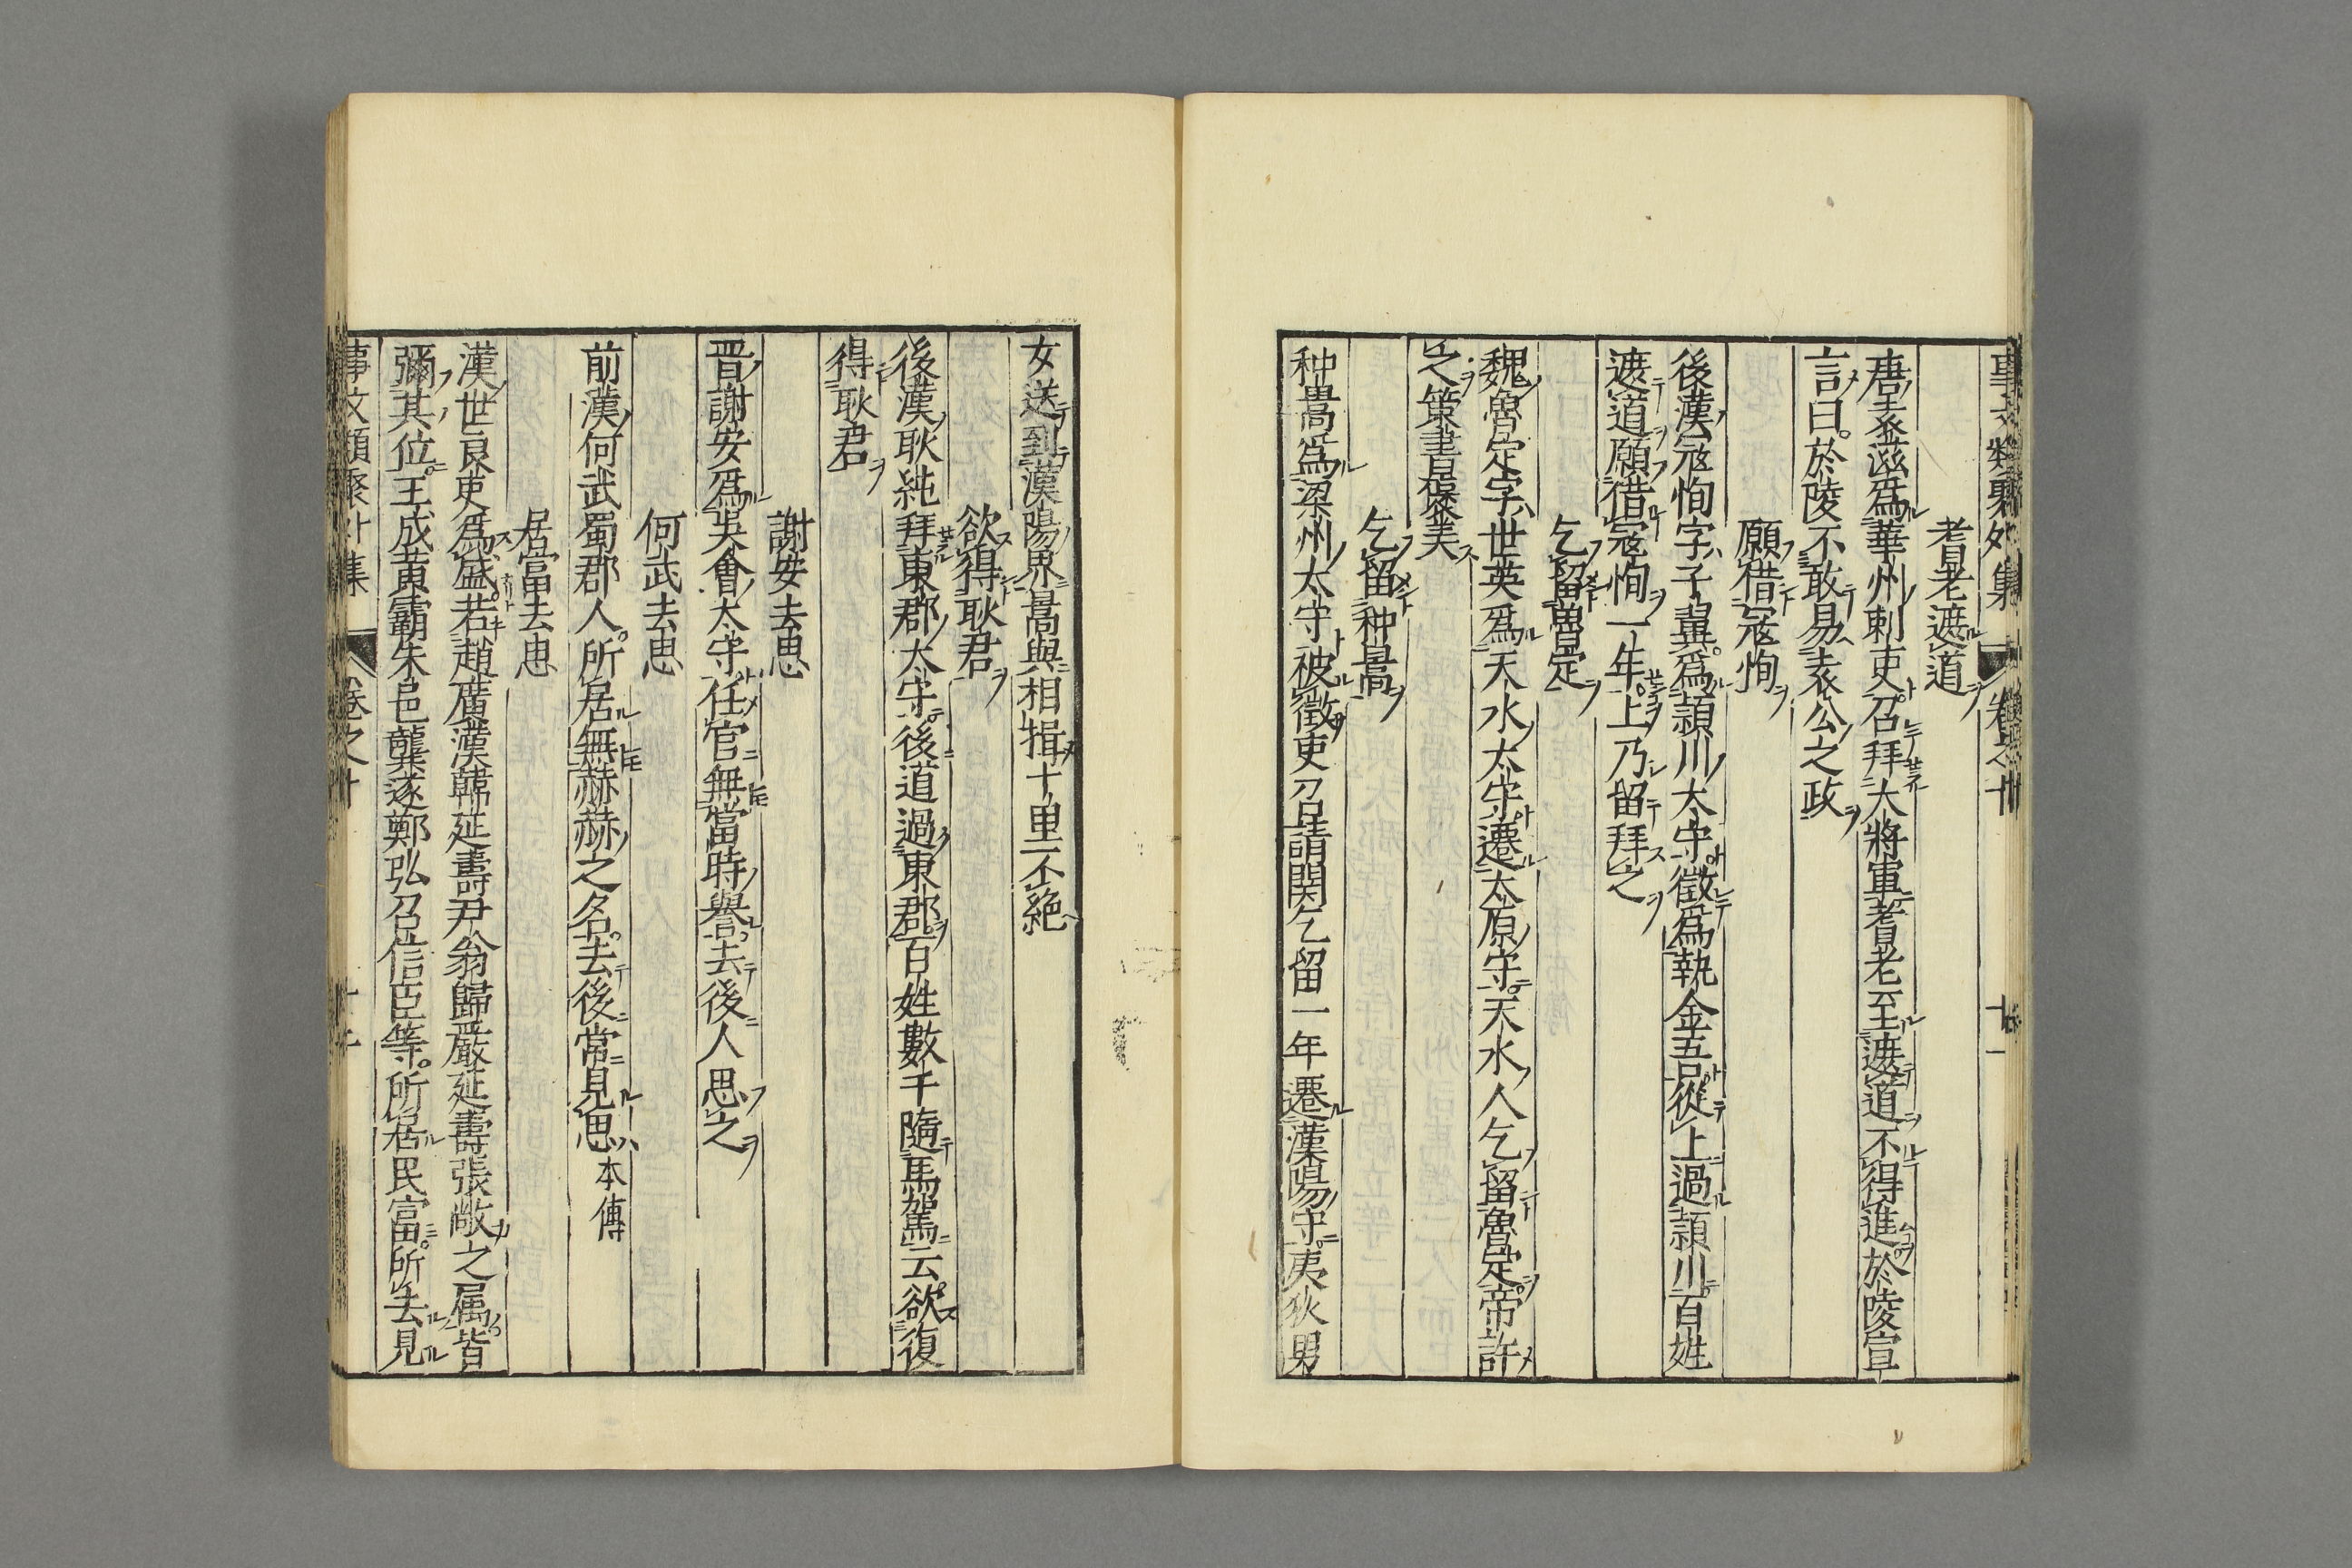 事文類聚外集 卷之十 十一
耆老遮道
唐袁滋爲華州刺吏召拜大將軍耆老至遮道不得進於陵宣
言曰於陵不敢易袁公之政
願借寇恂
後漢寇恂字子翼爲潁川太守徵爲執金吾從上過潁川百姓
遮道願借寇恂一年上乃留拜之
乞留魯定
魏魯定字世英爲天水太守遷太原守天水人乞留魯定帝許
之策書褒美
乞留种暠
种暠爲梁州太守被徵吏召請闕乞留一年遷漢陽守夷狄男
女送到漢陽界暠與相揖十里不絶
欲得耿君
後漢耿純拜東郡太守後道過東郡百姓數千隨馬駕云欲復
得耿君
謝安去思
晋謝安爲吳會太守任官無當時譽去後人思之
何武去思
前漢何武蜀郡人所居無赫赫之名去後常見思本傳
居富去思
漢世良吏爲盛若趙廣漢韓延壽尹翁歸嚴延壽張敞之属皆
彌其位王成黄霸朱邑龔遂鄭弘召信臣等所居民富所去見
事文類聚外集 卷之十